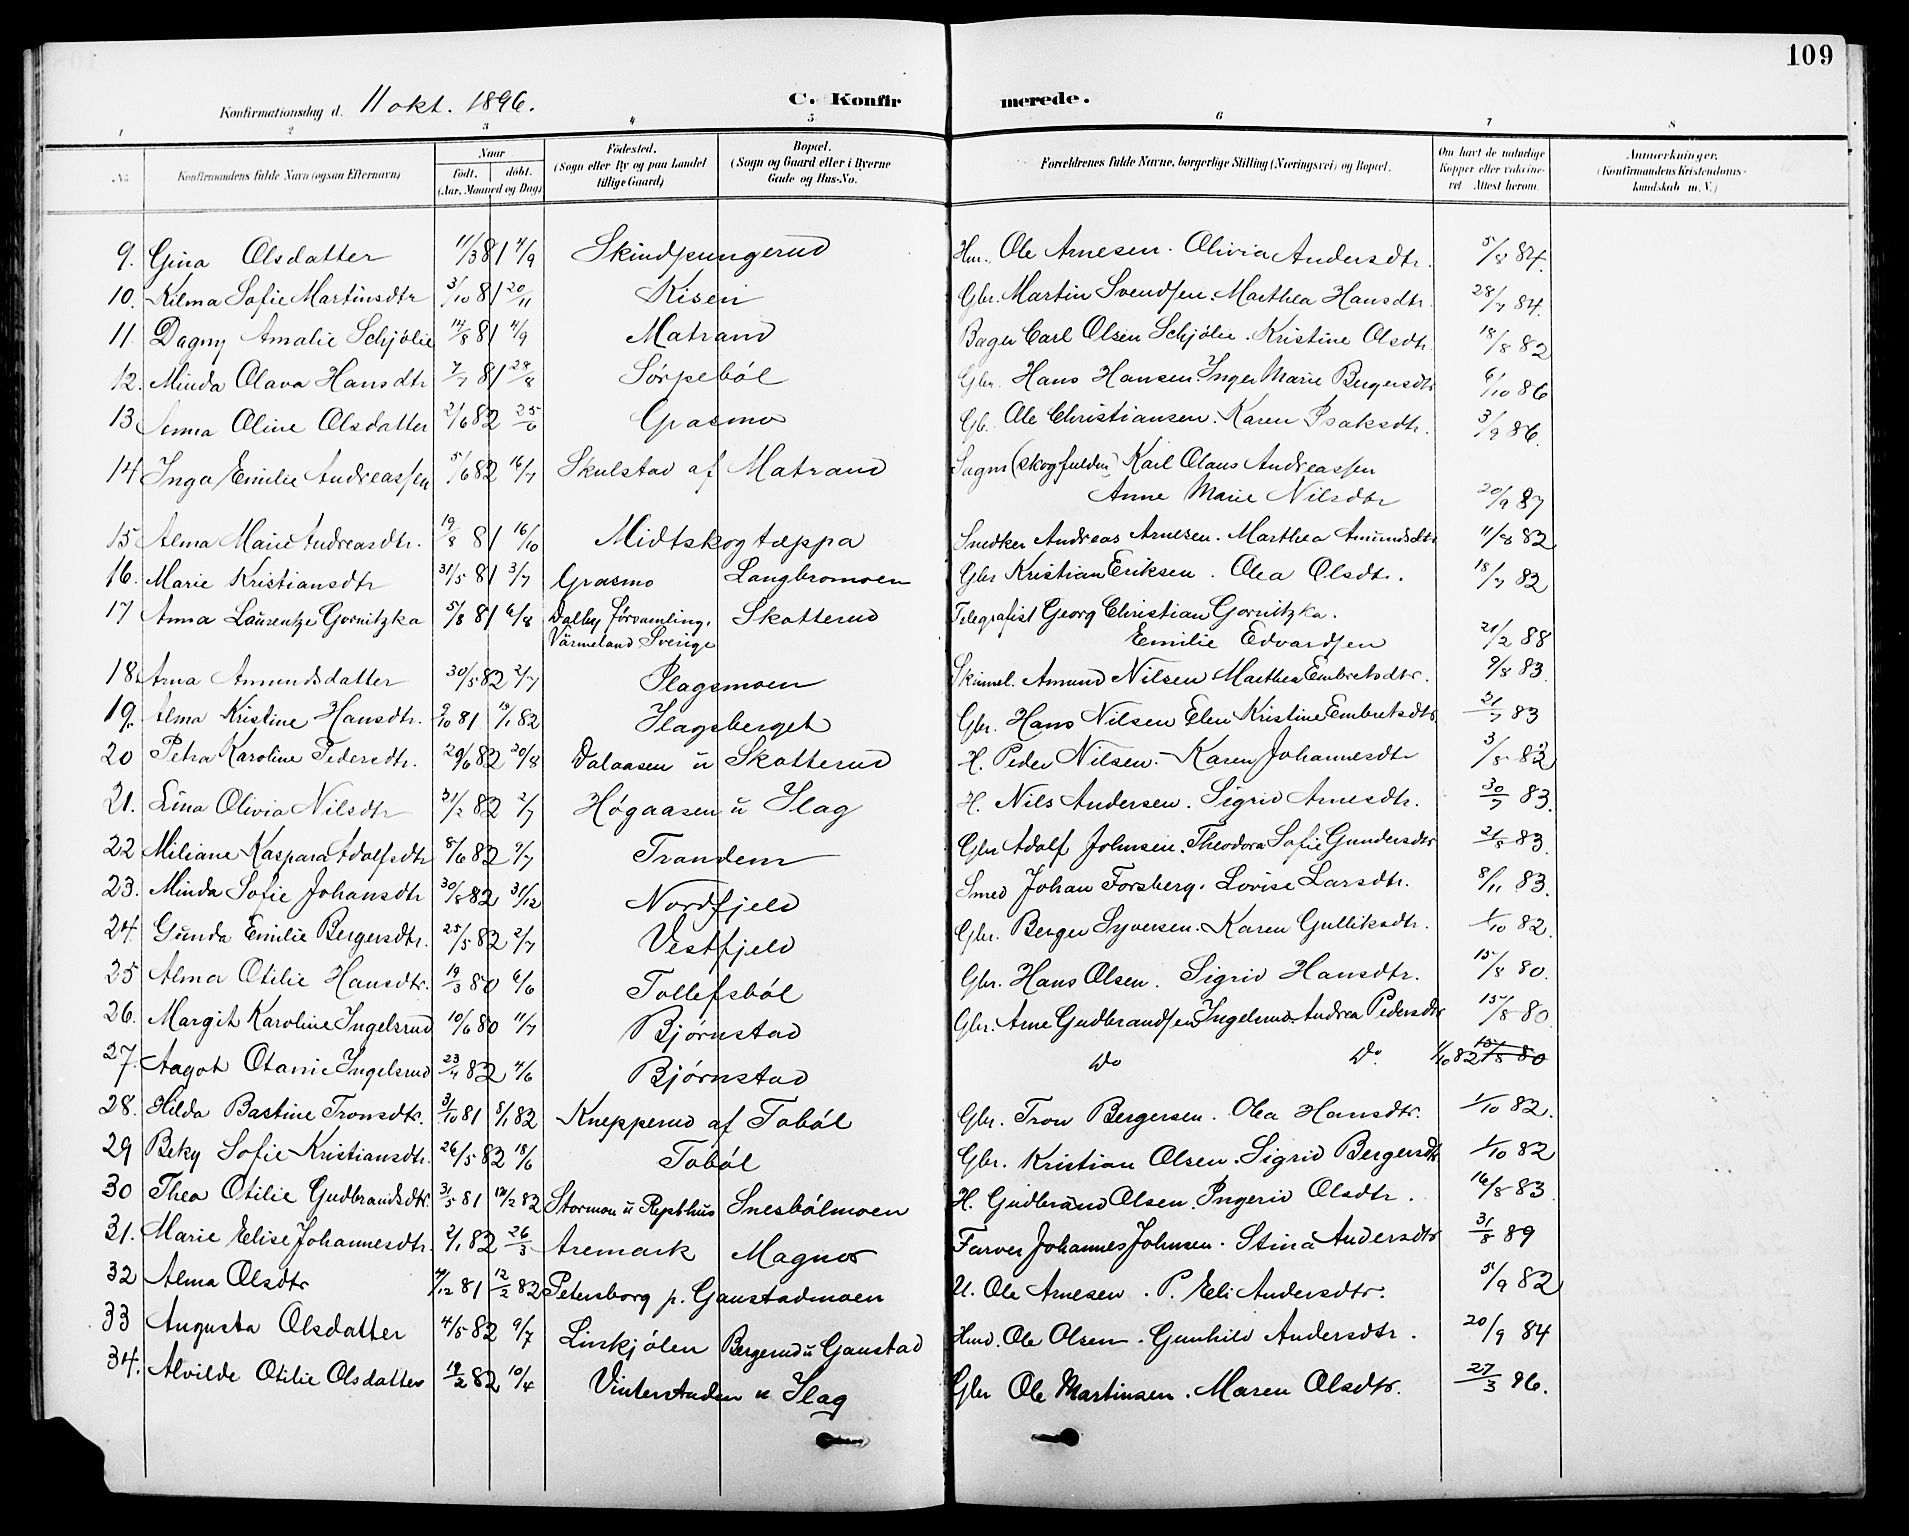 109
Konfirmationsdag d. 11 okt. 1896. C. Konfirmerede.
1 2 3 4 5 6 7 8
No. Konfirmandens fulde Navn (ogsaa Efternavn) Naar født. døbt. (Aar, Maaned og Dag) Fødested. (Sogn eller By og paa Landet tillige Gaard) Bopæl. (Sogn og Gaard eller i Byerne Gade og Hus-No. Forældrenes fulde Navne, borgerlige Stilling (Næringsvei) og Bopæl. Om havt de naturlige Kopper eller vakcineret. Attest herom. Anmærkninger. (Konfirmandens Kristendomskundskab m. V.)
9. Gina Olsdatter 11/3 81 4/9 Skindpungerud Hm. Ole Arnesen. Olivia Andersdtr. 5/8 84.
10. Kilma Sofie Martinsdtr 3/10 81 20/11 Kisen Gbr. Martin Svendsen. Marthea Hansdtr. 28/7 84.
11. Dagny Amalie Schjølie 14/8 81 4/9 Matrand Bager Carl Olsen Schjølie. Kristine Olsdtr. 18/8 82
12. Minda Olava Hansdtr 7/7 81 28/8 Sørpebøl Gbr. Hans Hansen. Inger Marie Bergersdtr 6/10 86
13. Anna Oline Olsdatter 2/6 82 25/6 Grasmo Gb. Ole Christiansen. Karen Isaksdtr. 3/9 86.
14 Inga Emilie Andreassen 5/6 82 16/7 Skulstad af Matrand Sagm (skogfulden) Karl Olaus Andreassen
Anne Marie Nilsdtr 20/9 87
15. Alma Marie Andreasdtr. 19/8 81 16/10 Midtskogtæppa Snedker Andreas Arnesen. Marthea Amundsdtr 11/8 82
16. Marie Kristiansdtr 31/5 81 3/7 Grasmo Langbromoen Gbr Kristian Eriksen. Olea Olsdtr. 18/7 82
17 Anna Laurentze Gornitzka 5/8 81 6/8 Dalby församling, Skotterud Telegrafist Georg Christian Gornitzka.
Värmeland Sverige Emilie Edvardsen 21/2 88
18. Anna Amundsdatter 30/5 82 2/7 Slagsmoen Skinsel. Amund Nilsen Marthea Embretsdtr. 9/8 83.
19. Alma Kristine Hansdtr. 9/10 81 15/1 82 Slagsberget Gbr. Hans Nilsen Elen Kristine Embretsdtr 21/7 83
20 Petra Karoline Pedersdtr. 29/6 82 20/8 Dalaasen u Skotterud H. Peder Nilsen. Karen Johannesdtr 3/8 83
21. Lina Olivia Nilsdtr 21/2 82 2/7 Høgaasen u Slag H. Nils Andersen. Sigrid Arnesdtr. 30/7 83.
22 Miliane Kaspara Adolfsdtr 8/6 82 9/7 Trandem Gbr Adolf Johnsen. Theodora Sofie Gundersdtr 21/8 83.
23. Minda Sofie Johansdtr 30/8 82 31/12 Nordfjeld Smed Johan Forsberg. Lovise Larsdtr. 8/11 83.
24. Gunda Emilie Bergersdtr. 25/5 82 2/7 Vestfjeld Gbr. Berger Syversen. Karen Gulliksdtr. 1/10 82.
25 Alma Otilie Hansdtr. 19/3 80 6/6 Tollefsbøl Gbr. Hans Olsen. Sigrid Hansdtr. 15/8 80.
26. Margit Karoline Ingelsrud 10/6 80 11/7 Bjørnstad Gbr. Arne Gudbrandsen Ingelsrud. Andrea Pedersdtr 15/8 80.
27. Aagot Otanie Ingelsrud 23/4 82 4/6 Bjørnstad Do Do 1/10 82 15/8 80
28. Hilda Bastine Tronsdtr. 31/10 81 8/1 82 Knepperud af Tobøl Gbr. Tron Bergersen. Olea Hansdtr. 1/10 82.
29 Beky Sofie Kristiansdtr. 26/5 82 18/6 Tobøl Gbr. Kristian Olsen. Sigrid Bergersdtr 1/10 82
30 Thea Otilie Gudbrandsdtr. 31/5 81 12/2 82 Stormoen u Repthus Snesbølmoen H. Gudbrand Olsen. Ingerid Olsdtr. 16/8 83.
31. Marie Elise Johannesdtr. 2/1 82 26/3 Aremark Magnor Farver Johannes Johnsen. Stina Andersdtr 31/8 89
32 Alma Olsdtr 4/12 81 12/2 82 Petersborg p. Gaustadmoen U. Ole Arnesen. P. Eli Andersdtr. 5/9 82
33 Augusta Olsdatter 4/5 82 9/7 Linkjølen Bergerud u Gaustad Hmd. Ole Olsen. Gunhild Andersdtr. 20/9 84
34. Alvilde Otilie Olsdatter 19/2 82 10/4 Vinterstuden u Slag Gbr Ole Martinsen. Maren Olsdtr. 27/3 96.